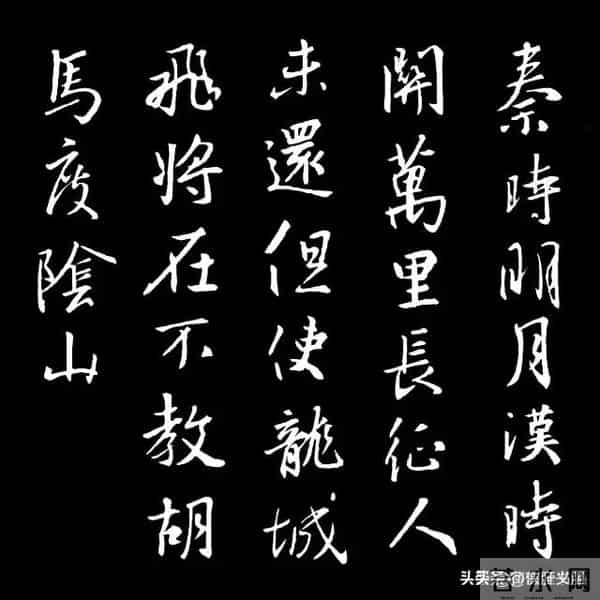 秦時明月漢時
開萬里長征人
未還但使龍城
飛將在不教胡
馬度陰山
头条